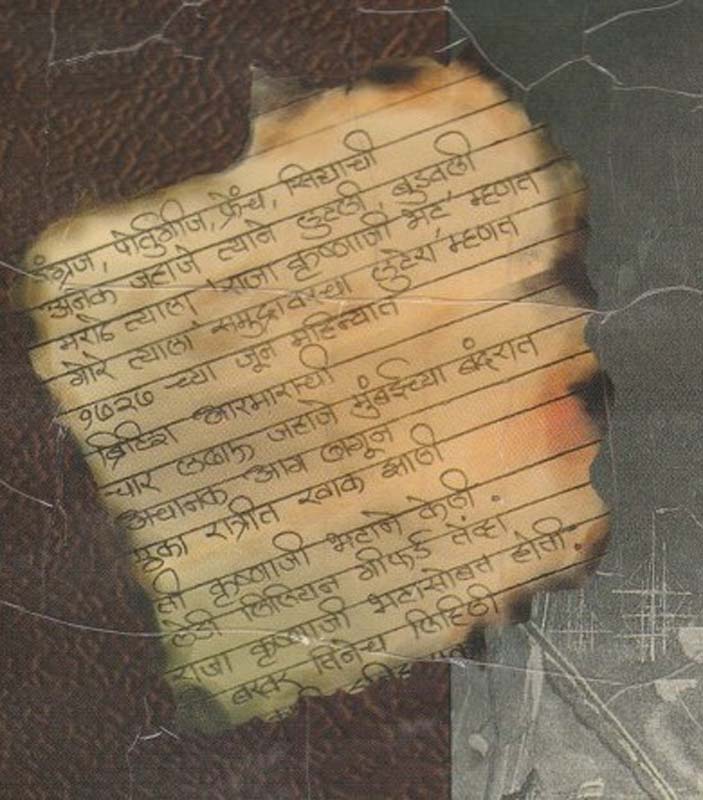 इंग्रज, पोर्तुगीज, फ्रेंच, सिद्याची
अनेक जहाजे त्याने लुटली, बुडवली
मराठे त्याला 'राजा कृष्णाजी भट' म्हणत
गोरे त्याला 'समुद्रावरचा लुटेरा' म्हणत
१७२७ च्या जून महिन्यात
ब्रिटिश आरमाराची
चार लढाऊ जहाजे मुंबईच्या बंदरात
अचानक आग लागून
एका रात्रीत खाक झाली
ही कृष्णाजी भटाने केली.
लेडी लिलियन गीफर्ड तेंव्हा
राजा कृष्णाजी भटासोबत होती.
बखर तिनेच लिहिली